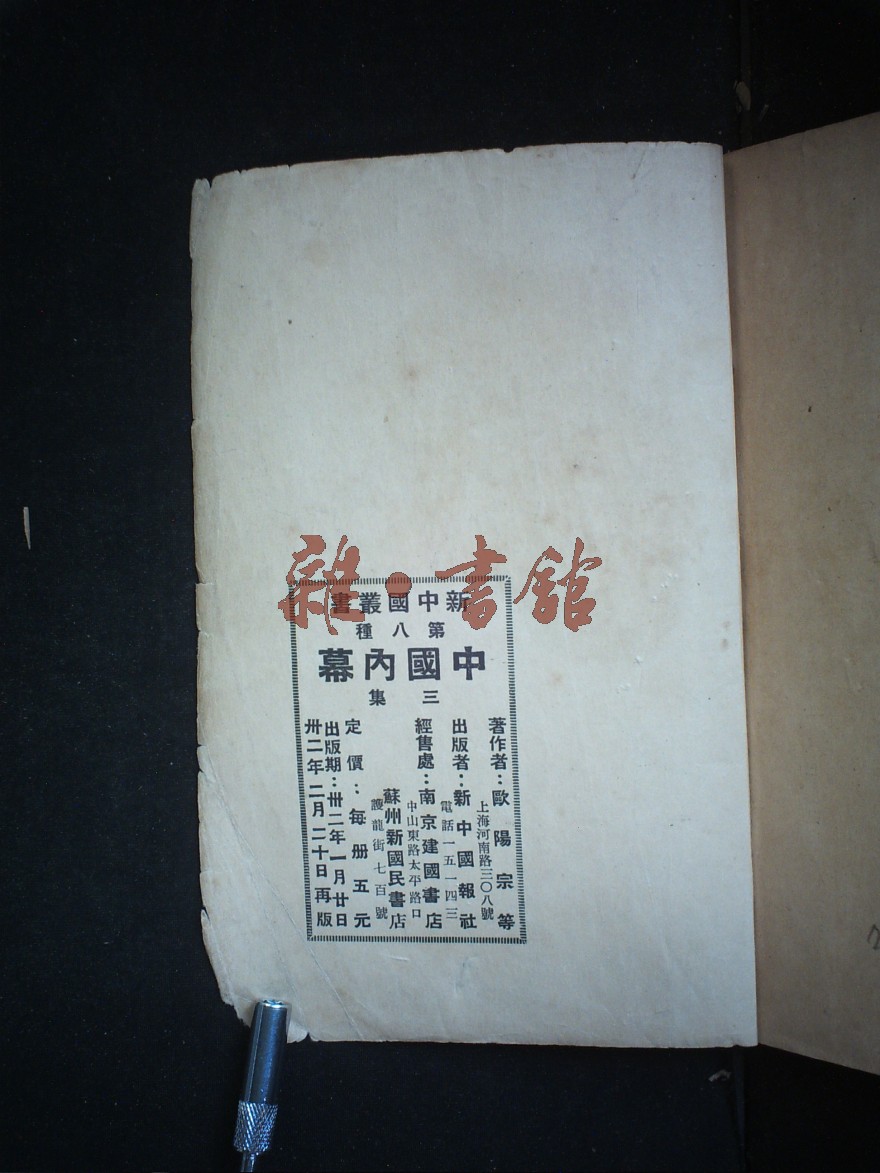 雜·書館
新中國叢書
第八種
中國內幕
三集
著作者：歐陽宗等
上海河南路三〇八號
出版者：新中國報社
電話一五一四三
經售處：南京建國書店
中山東路太平路口
蘇州新國民書店
護龍街七百號
定價：每册五元
出版期：卅二年一月廿日
卅二年二月二十日再版